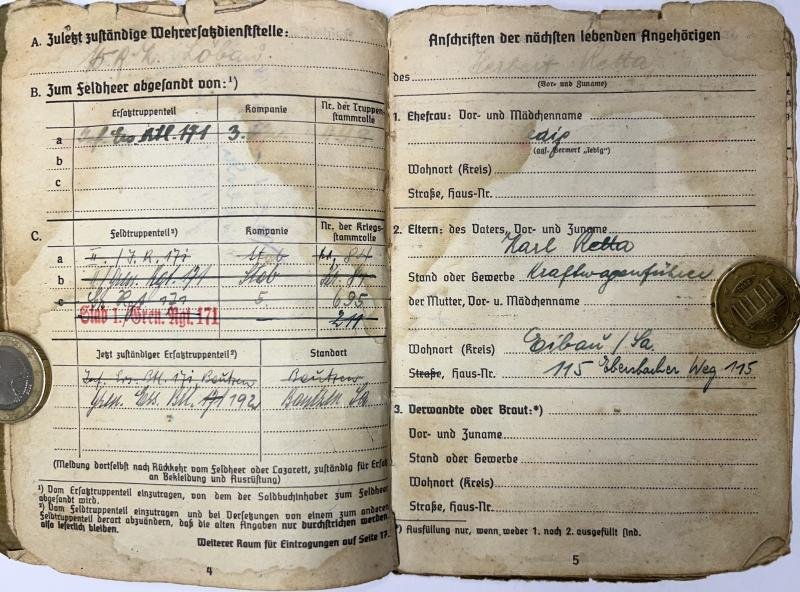 A. Zuletzt zuständige Wehrersatzdienststelle:
Löbau
B. Zum Feldheer abgesandt von:¹)
Ersatztruppenteil Kompanie Nr. der Truppen-
stammrolle
a Inf. Ers. Btl. 171 3.
b
c
C. Feldtruppenteil²) Kompanie Nr. der Kriegs-
stammrolle
a II. / J. R. 171 Stab Nr. 84
b II/Gren. Rgt. 171 Stab Nr. 84
c Gr. Rgt 171 5. 695
Stab I./Gren. Rgt. 171 — 211
Jetzt zuständiger Ersatztruppenteil²) Standort
Inf. Ers. Btl. 171 Bautzen Bautzen
Gren. Ers. Btl. 171 192 Bautzen Sa.
(Meldung dortselbst nach Rückkehr vom Feldheer oder Lazarett, zuständig für Ersatz
an Bekleidung und Ausrüstung)
¹) Vom Ersatztruppenteil einzutragen, von dem der Soldbuchinhaber zum Feldheer
abgesandt wird.
²) Vom Feldtruppenteil einzutragen und bei Versetzungen von einem zum anderen
Feldtruppenteil derart abzuändern, daß die alten Angaben nur durchstrichen werden,
also leserlich bleiben.
Weiterer Raum für Eintragungen auf Seite 17.
4
Anschriften der nächsten lebenden Angehörigen
des Herbert Retta
(Vor- und Zuname)
1. Ehefrau: Vor- und Mädchenname
(ggf. Vermerk „ledig")
Wohnort (Kreis)
Straße, Haus-Nr.
2. Eltern: des Vaters, Vor- und Zuname
Karl Retta
Stand oder Gewerbe Kraftwagenführer
der Mutter, Vor- u. Mädchenname
Wohnort (Kreis) Eibau / Sa.
Straße, Haus-Nr. 115 Ebersbacher Weg 115
3. Verwandte oder Braut:*)
Vor- und Zuname
Stand oder Gewerbe
Wohnort (Kreis)
Straße, Haus-Nr.
*) Ausfüllung nur, wenn weder 1. noch 2. ausgefüllt sind.
5